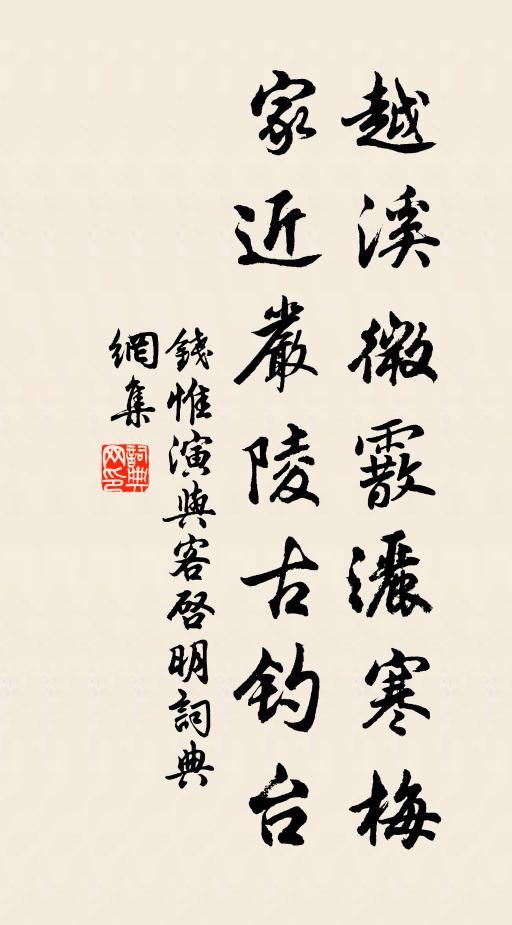 越溪微霰灑寒梅
家近嚴陵古釣台
錢惟演與客啓明詞典
網集
詞典
网印